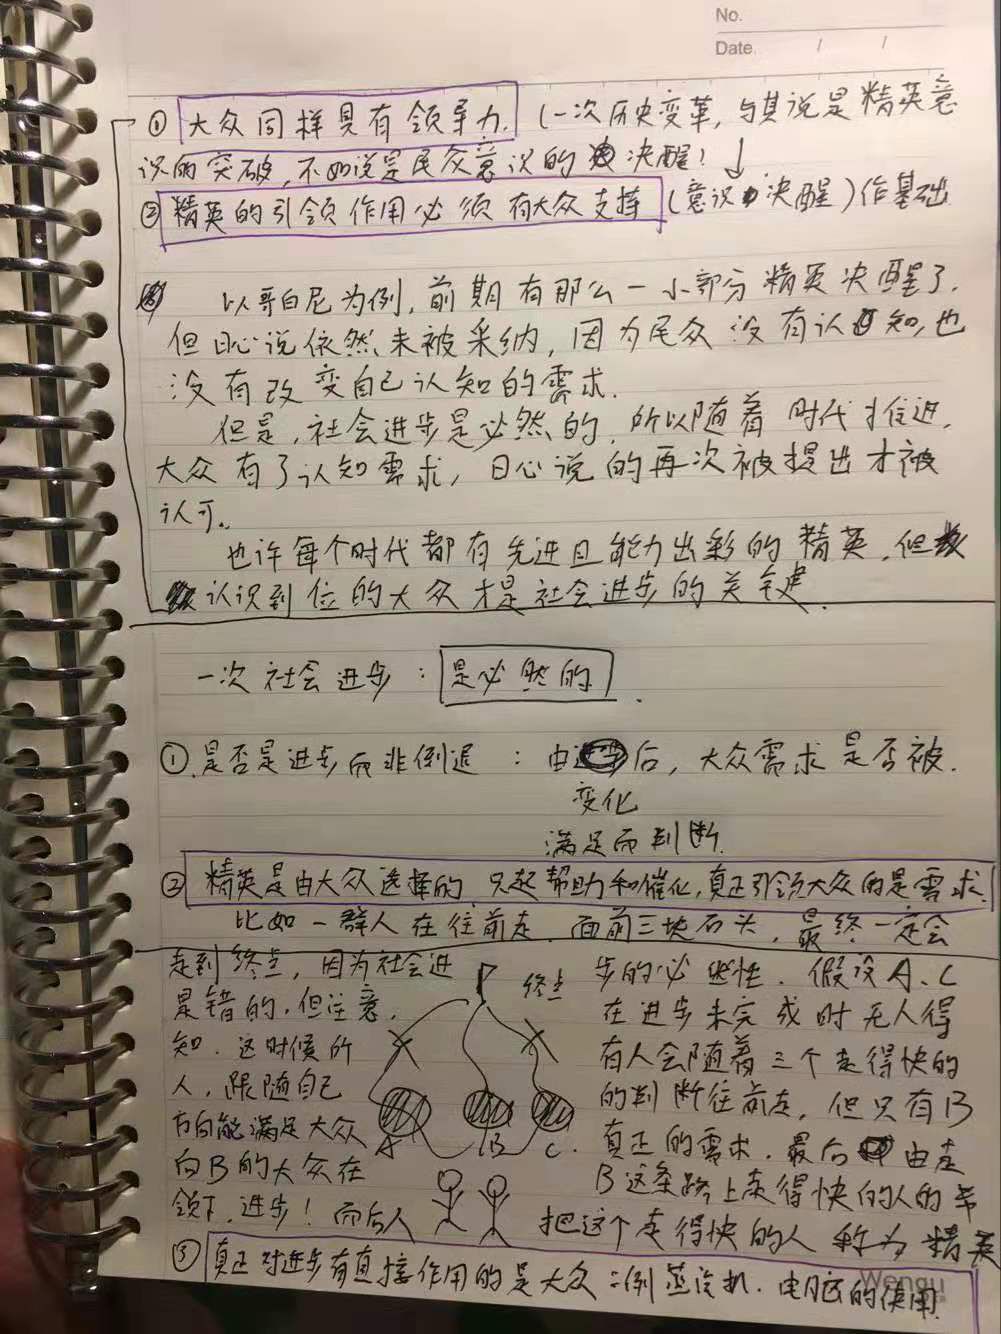 No.
Date. / /
① 大众同样具有领导力. (一次历史变革, 与其说是精英意
识的突破, 不如说是民众意识的决醒!
② 精英的引领作用必须有大众支撑 (意识决醒) 作基础
以哥白尼为例, 前期有那么一小部分精英决醒了.
但日心说依然未被采纳, 因为民众没有认知, 也
没有改变自己认知的需求.
但是, 社会进步是必然的, 所以随着时代推进,
大众有了认知需求, 日心说的再次被提出才被
认可。
也许每个时代都有先进且能力出彩的精英, 但
认识到位的大众才是社会进步的关键.
一次社会进步: 是必然的.
①. 是否是进步而非倒退: 由变化后, 大众需求是否被.
满足而判断.
② 精英是由大众选择的 只起帮助和催化, 真正引领大众的是需求.
比如一群人在往前走. 面前三块石头, 最终一定会
走到终点, 因为社会进 终点 步的必然性. 假设A、C
是错的, 但注意, 在进步未完成时无人得
知. 这时候所 有人会随着三个走得快的
人, 跟随自己 的判断往前走, 但只有B
方向能满足大众 A B C. 真正的需求. 最后由走
向B的大众在 B这条路上走得快的人的带
领下, 进步! 而后人 把这个走得快的人称为精英
③ 真正对进步有直接作用的是大众 二例 蒸汽机. 电脑的使用
Wengu